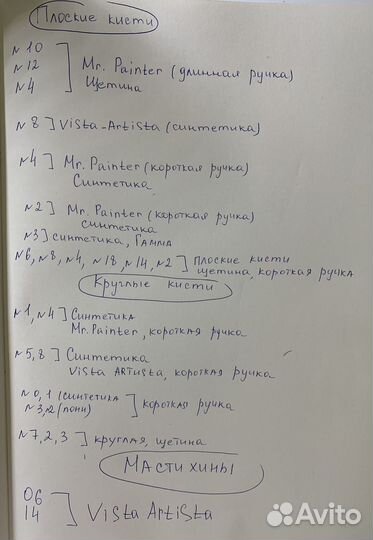 Плоские кисти
№10
№12 ] Mr. Painter (длинная ручка)
№4 Щетина
№8 ] Vista-Artista (синтетика)
№4 ] Mr. Painter (короткая ручка)
Синтетика
№2 ] Mr. Painter (короткая ручка)
синтетика
№3 ] синтетика, Гамма
№6, №8, №4, №18, №14, №2 ] Плоские кисти
щетина, короткая ручка
Круглые кисти
№1, №4 ] Синтетика
Mr. Painter, короткая ручка
№5, 8 ] Синтетика
Vista ARTista, короткая ручка
№0, 1 (синтетика
№3, 2 (пони) ] короткая ручка
№7, 2, 3 ] круглая, щетина
Мастихины
06
14 ] Vista Artista
Avito